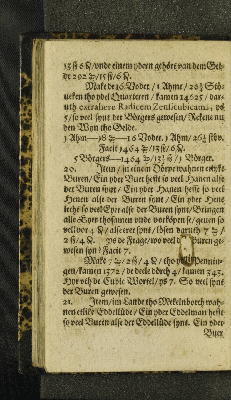 13 ß 6 ₰/ vnde einem ydern gehöret van dem Gel-
de 292 ℔/ 15 ß/ 6 ₰.
Make de 16. Voder/ 1 Ahme/ 26¼ Stö-
ueken tho ydel Quarteren/ kamen 14625/ dar-
uth extrahere Radicem Zensicubicam/
5/ so veel synt der Börgers gewesen/ Rekene nu
den Wyn tho Gelde.
1 Ahm — 18 ℔ — 16 Voder. 1 Ahm/ 26¼ stöv.
Facit 1464 ℔/ 13 ß/ 6 ₰.
5 Börgers — 1464 ℔/ 13½ ß/ 1 Börger.
20. Item/ in einem Dörpe wahnen etlyke
Buren/ Ein yder Buer hefft so veel Hanen alse
der Buren synt/ Ein yder Hanen hefft so veel
Henen alse der Buren synt/ Ein yder Hene
lecht so veel Eyer alse der Buren synt/ Bringen
alle Eyer thosamen vnde vorköpen se/ geuen so
veel vor 4 ₰/ alse erer synt/ lösen daruth 7 ℔/
2 ß/ 4 ₰. ys de Frage/ wo veel Buren ge-
wesen syn? Facit 7.
Make 7 ℔/ 2 ß/ 4 ₰/ tho Pennin-
gen/ kamen 1372/ de deele dörch 4/ kamen 343.
Hyr vth de Cubic Wortel/ ys 7. So veel synt
der Buren gewesen.
21. Item/ im Lande tho Mekelnborch wah-
nen etlike Eddellüde/ Ein yder Eddelman hefft
so veel Buren alse der Eddellüde synt. Ein yder
Buer